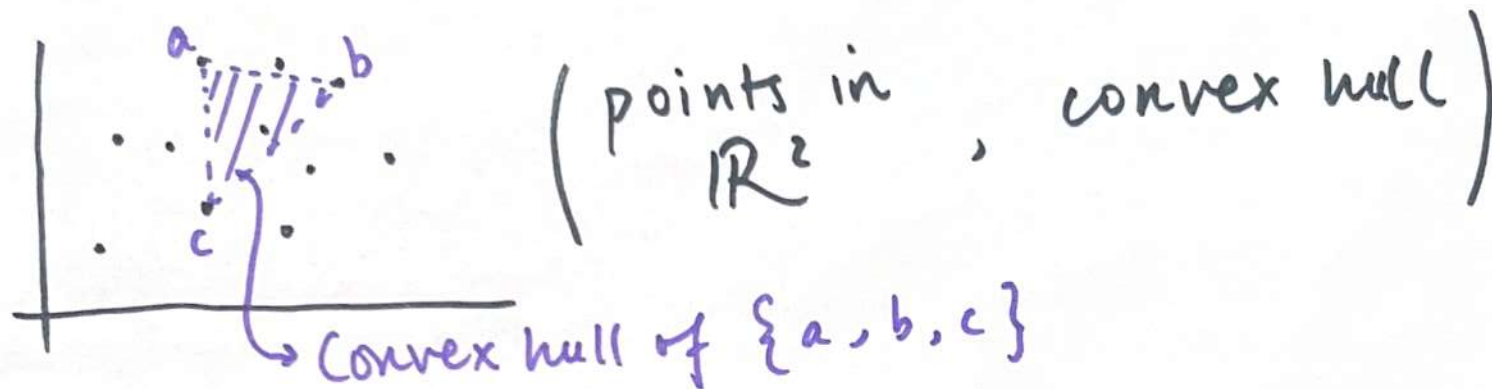 a
b
c
( points in ℝ² , convex hull )
Convex hull of {a, b, c}